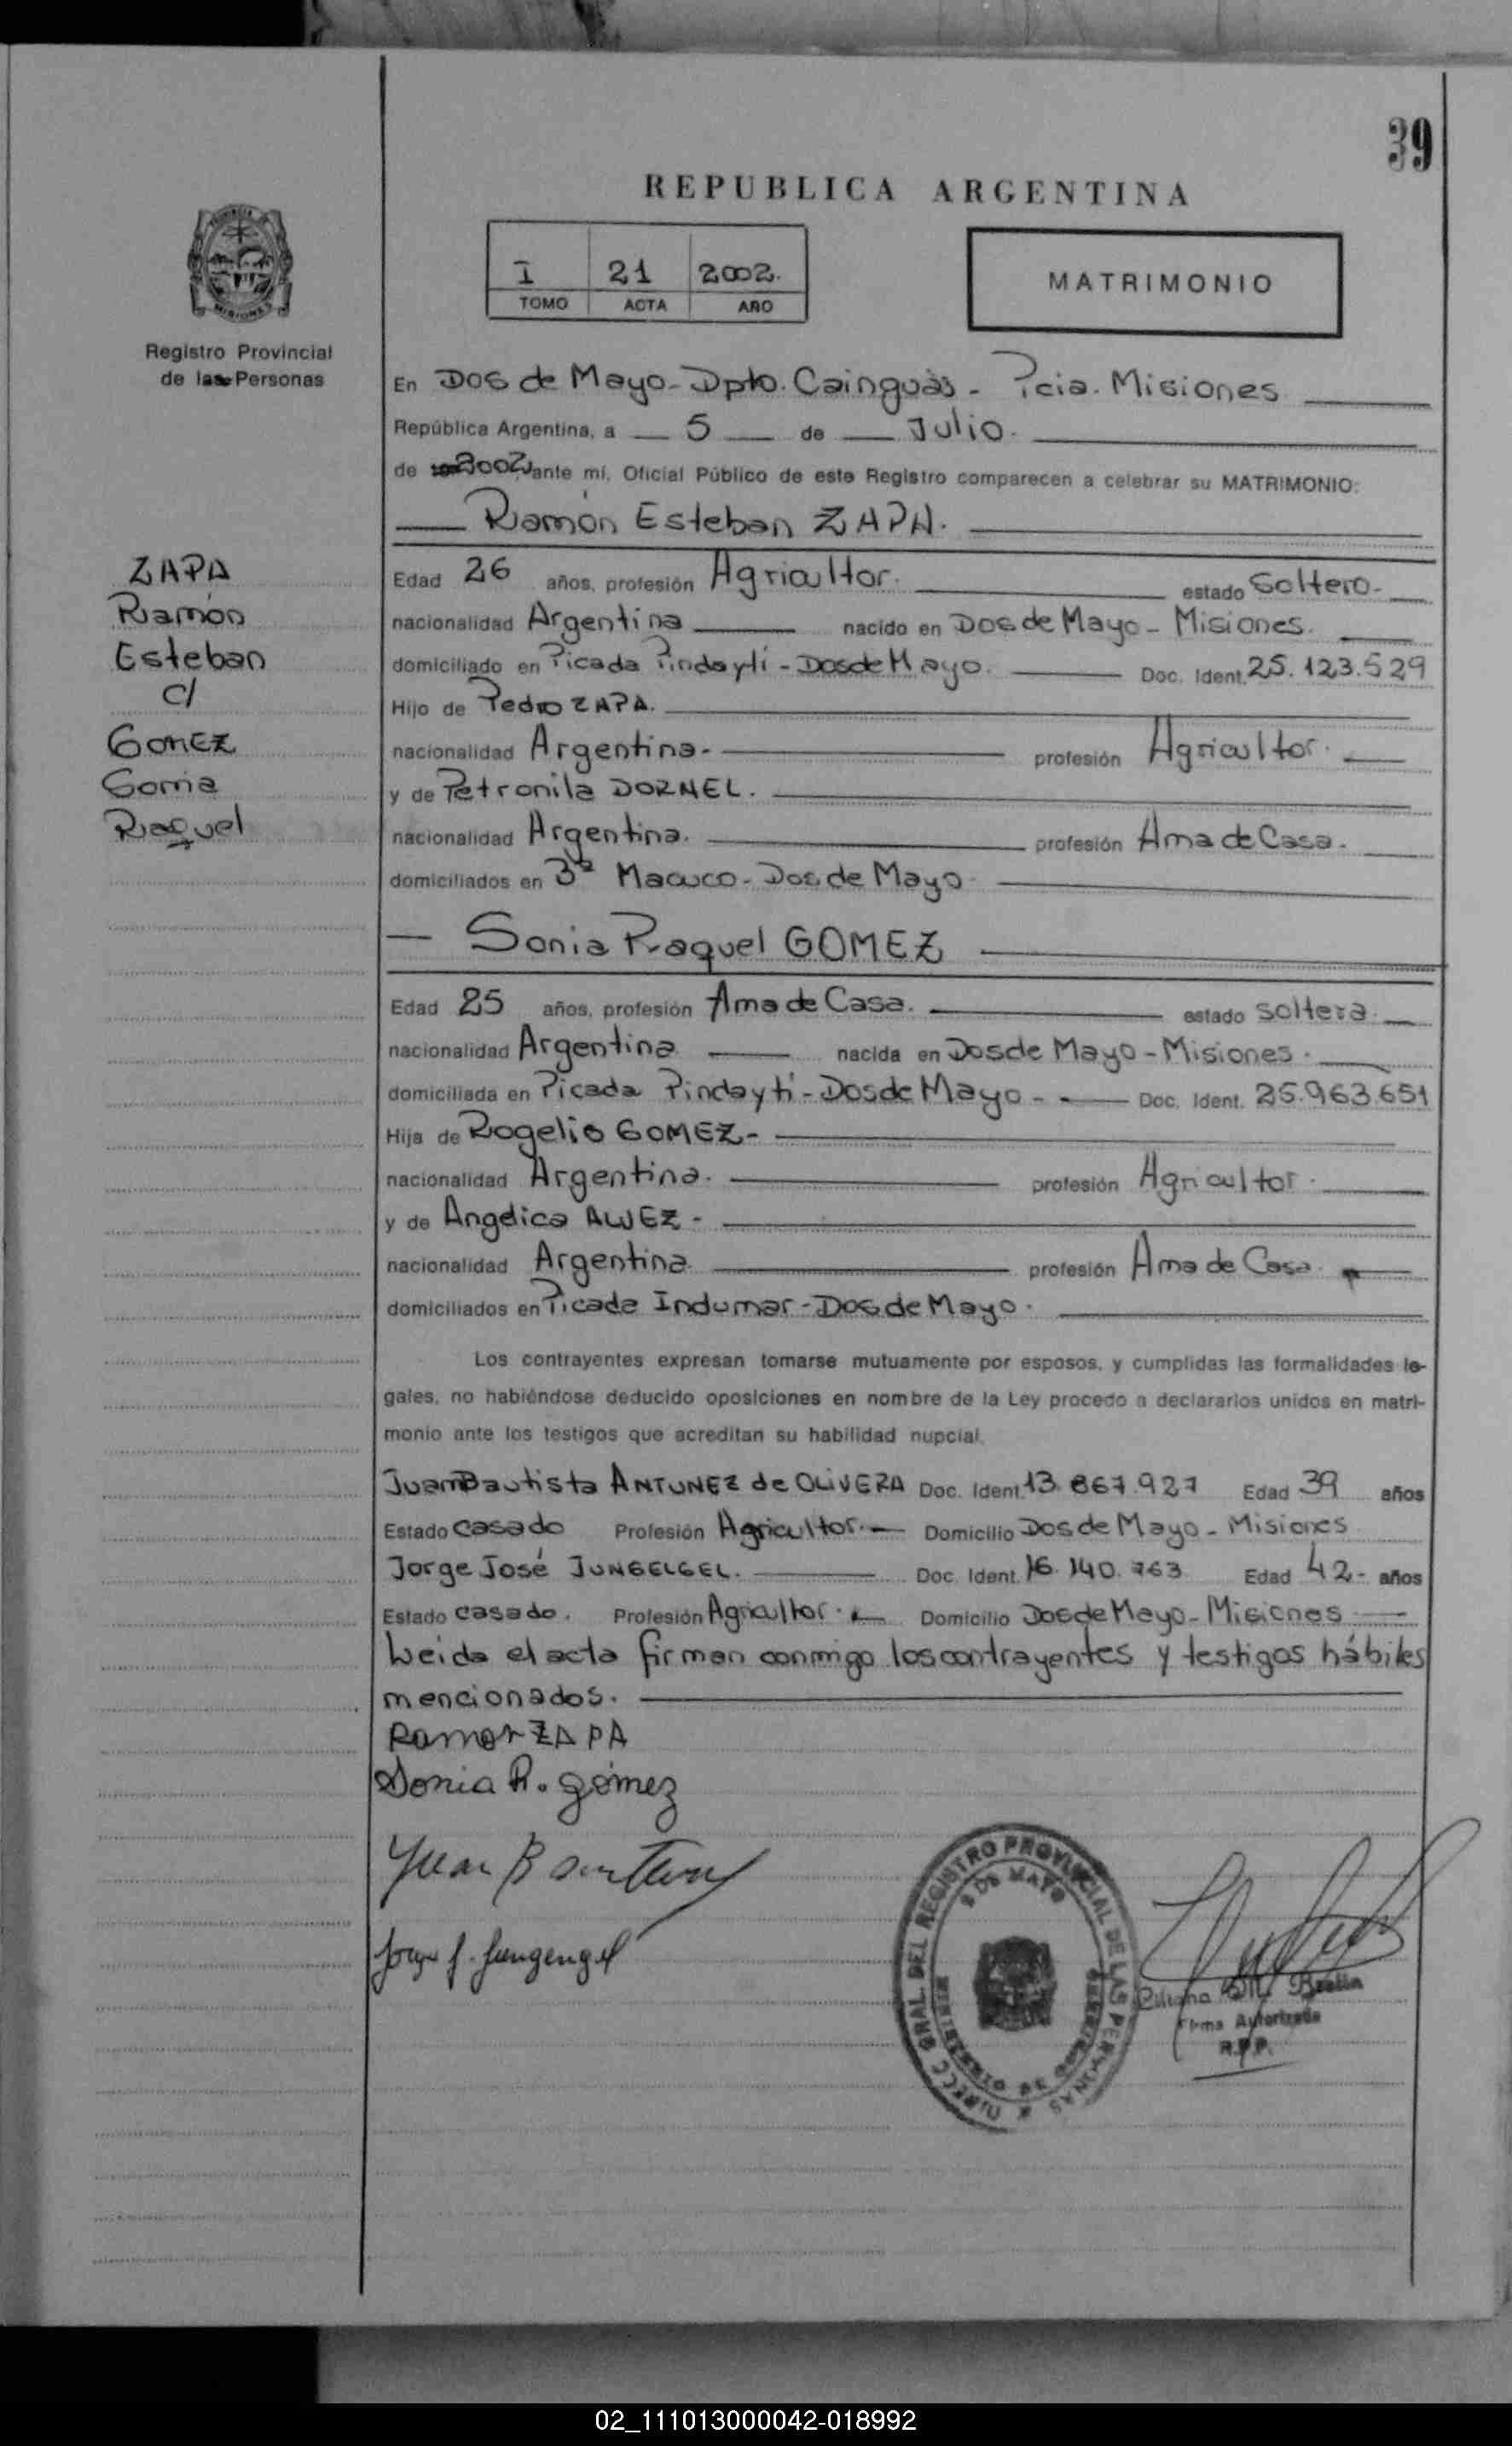 39
REPUBLICA ARGENTINA
I 21 2002.
TOMO ACTA AÑO
MATRIMONIO
Registro Provincial
de las Personas
En Dos de Mayo - Dpto. Cainguás - Pcia. Misiones
República Argentina, a 5 de Julio.
de 2002, ante mí, Oficial Público de este Registro comparecen a celebrar su MATRIMONIO:
Ramón Esteban ZAPA.
ZAPA
Ramón
Esteban
c/
GOMEZ
Sonia
Raquel
Edad 26 años, profesión Agricultor. estado Soltero.-
nacionalidad Argentina nacido en Dos de Mayo - Misiones.
domiciliado en Picada Pindaytí - Dos de Mayo. Doc. Ident. 25.123.529
Hijo de Pedro ZAPA.
nacionalidad Argentina.- profesión Agricultor.
y de Petronila DORNEL.
nacionalidad Argentina. profesión Ama de Casa.
domiciliados en 3ª Macuco - Dos de Mayo
Sonia Raquel GOMEZ
Edad 25 años, profesión Ama de Casa. estado soltera.
nacionalidad Argentina nacida en Dos de Mayo - Misiones.
domiciliada en Picada Pindaytí - Dos de Mayo - Doc. Ident. 25.963.651
Hija de Rogelio GOMEZ -
nacionalidad Argentina. profesión Agricultor.
y de Angelica ALVEZ -
nacionalidad Argentina. profesión Ama de Casa.
domiciliados en Picada Indumar - Dos de Mayo.
Los contrayentes expresan tomarse mutuamente por esposos, y cumplidas las formalidades le-
gales, no habiéndose deducido oposiciones en nombre de la Ley procedo a declararlos unidos en matri-
monio ante los testigos que acreditan su habilidad nupcial.
Juan Bautista ANTUNEZ de OLIVERA Doc. Ident. 13.867.927 Edad 39 años
Estado casado Profesión Agricultor.- Domicilio Dos de Mayo - Misiones
Jorge José JUNGELGEL. Doc. Ident. 16.140.763 Edad 42- años
Estado casado. Profesión Agricultor. Domicilio Dos de Mayo - Misiones
Leida el acta firman conmigo los contrayentes y testigos hábiles
mencionados.
Ramon ZAPA
Sonia R. gómez
Juan B
Jorge J. Jungengel
DIRECC GRAL. DEL REGISTRO PROVINCIAL DE LAS PERSONAS
2 DE MAYO
Firma Autorizada
R.P.P.
02_111013000042-018992